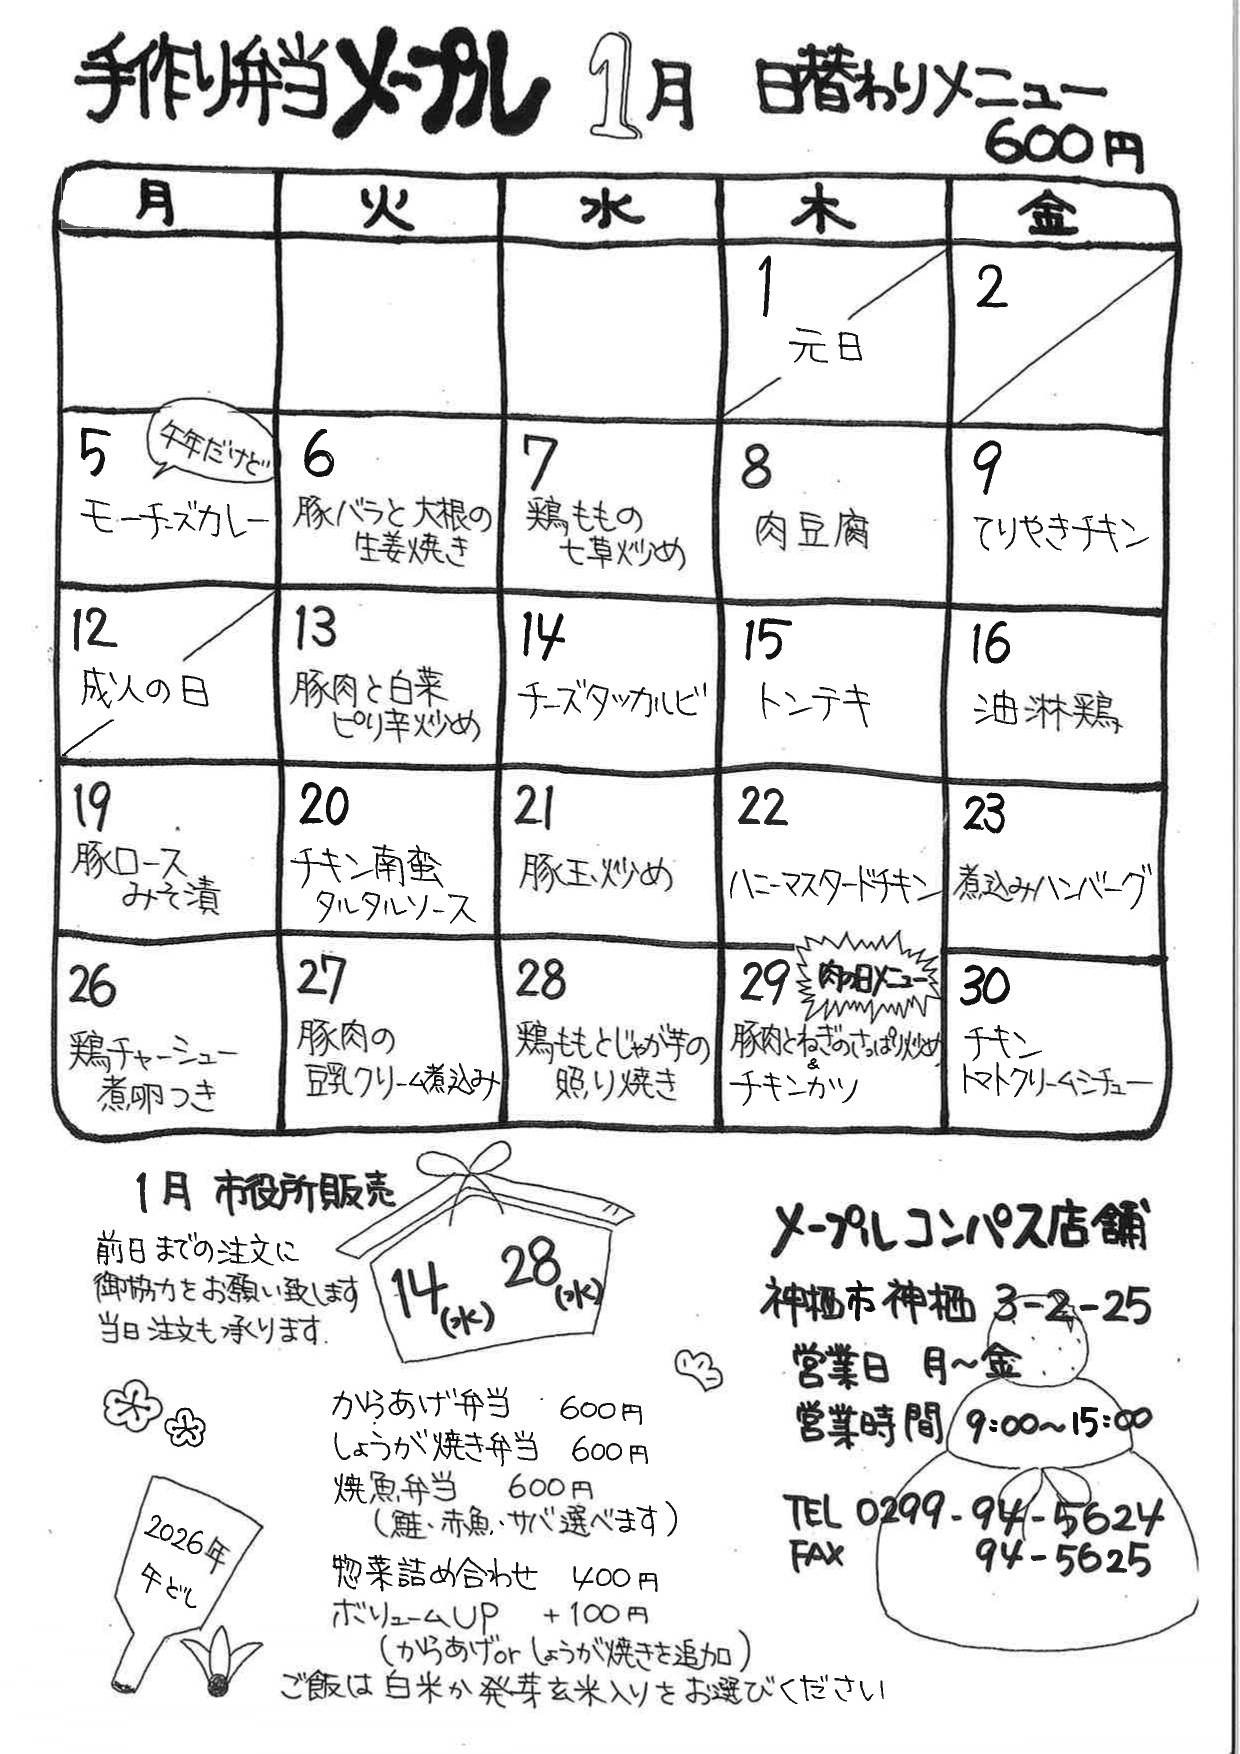 手作り弁当メープル 1月 日替わりメニュー
600円
月 火 水 木 金
1
元日
2
5
午年だけど
モーチーズカレー
6
豚バラと大根の
生姜焼き
7
鶏ももの
七草炒め
8
肉豆腐
9
てりやきチキン
12
成人の日
13
豚肉と白菜
ピリ辛炒め
14
チーズタッカルビ
15
トンテキ
16
油淋鶏
19
豚ロース
みそ漬
20
チキン南蛮
タルタルソース
21
豚玉炒め
22
ハニーマスタードチキン
23
煮込みハンバーグ
26
鶏チャーシュー
煮卵つき
27
豚肉の
豆乳クリーム煮込み
28
鶏ももとじゃが芋の
照り焼き
29
肉の日メニュー
豚肉とねぎのさっぱり炒め
&
チキンカツ
30
チキン
トマトクリームシチュー
1月 市役所販売
前日までの注文に
御協力をお願い致します
当日注文も承ります.
14(水) 28(水)
からあげ弁当 600円
しょうが焼き弁当 600円
焼魚弁当 600円
(鮭・赤魚・サバ選べます)
惣菜詰め合わせ 400円
ボリュームUP +100円
(からあげorしょうが焼きを追加)
ご飯は白米か発芽玄米入りをお選びください
2026年
午どし
メープルコンパス店舗
神栖市神栖 3-2-25
営業日 月~金
営業時間 9:00~15:00
TEL 0299-94-5624
FAX 94-5625